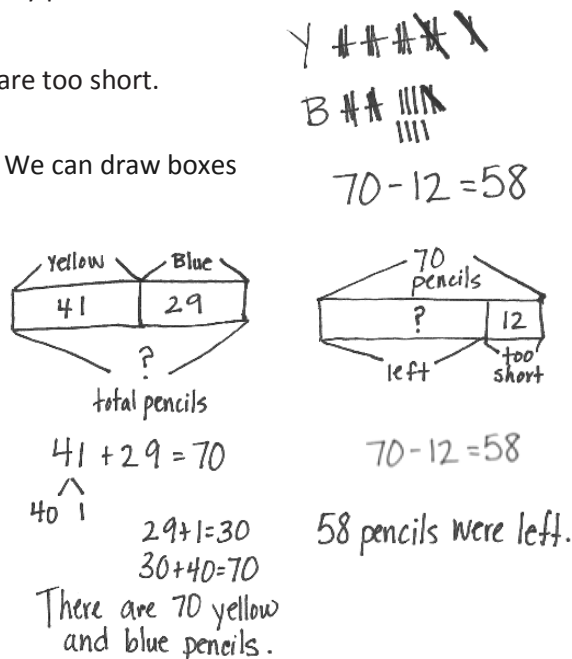 are too short.
We can draw boxes
Y
B
70-12=58
Yellow Blue
41 29
?
total pencils
41+29=70
40 1
29+1=30
30+40=70
There are 70 yellow
and blue pencils.
70
pencils
? 12
left too
short
70-12=58
58 pencils were left.